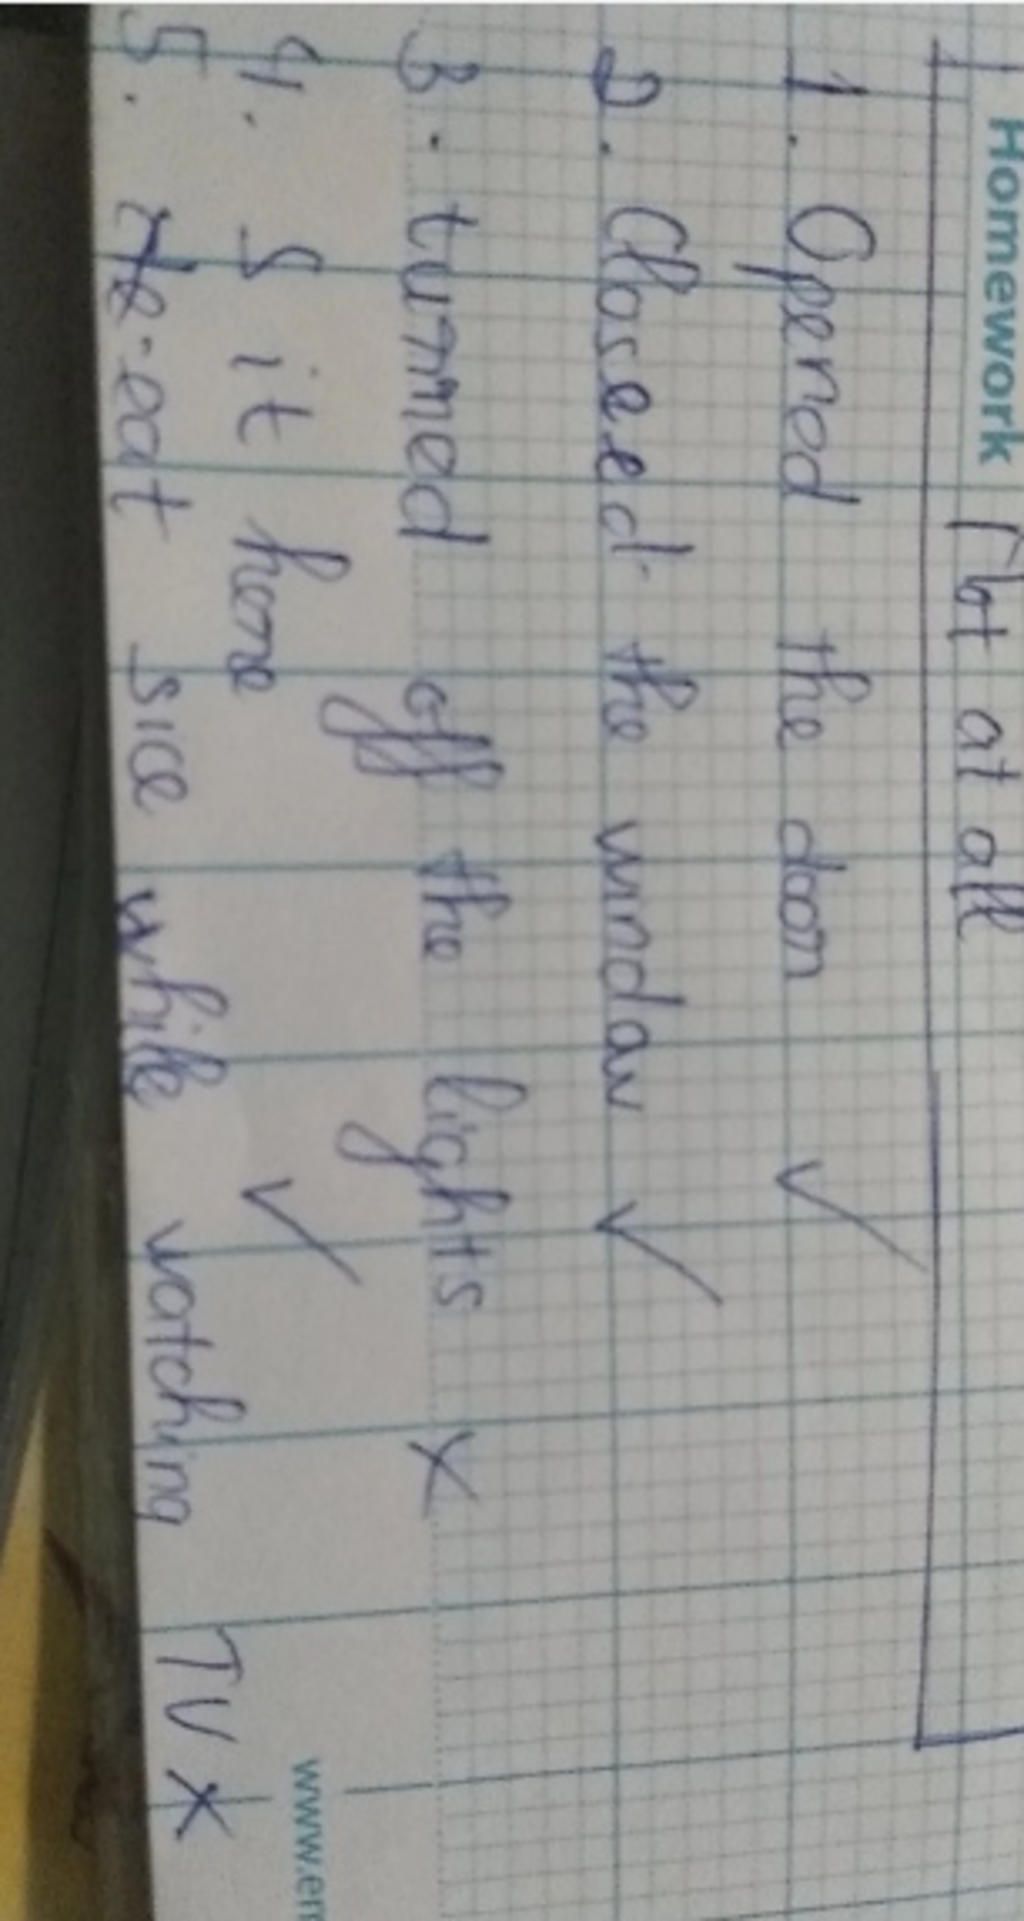 Homework Not at all
1. Opened the door ✓
2. Closeed the window ✓
3. turned off the lights ×
4. Sit here ✓
5. eat sice while watching TV ×
www.em